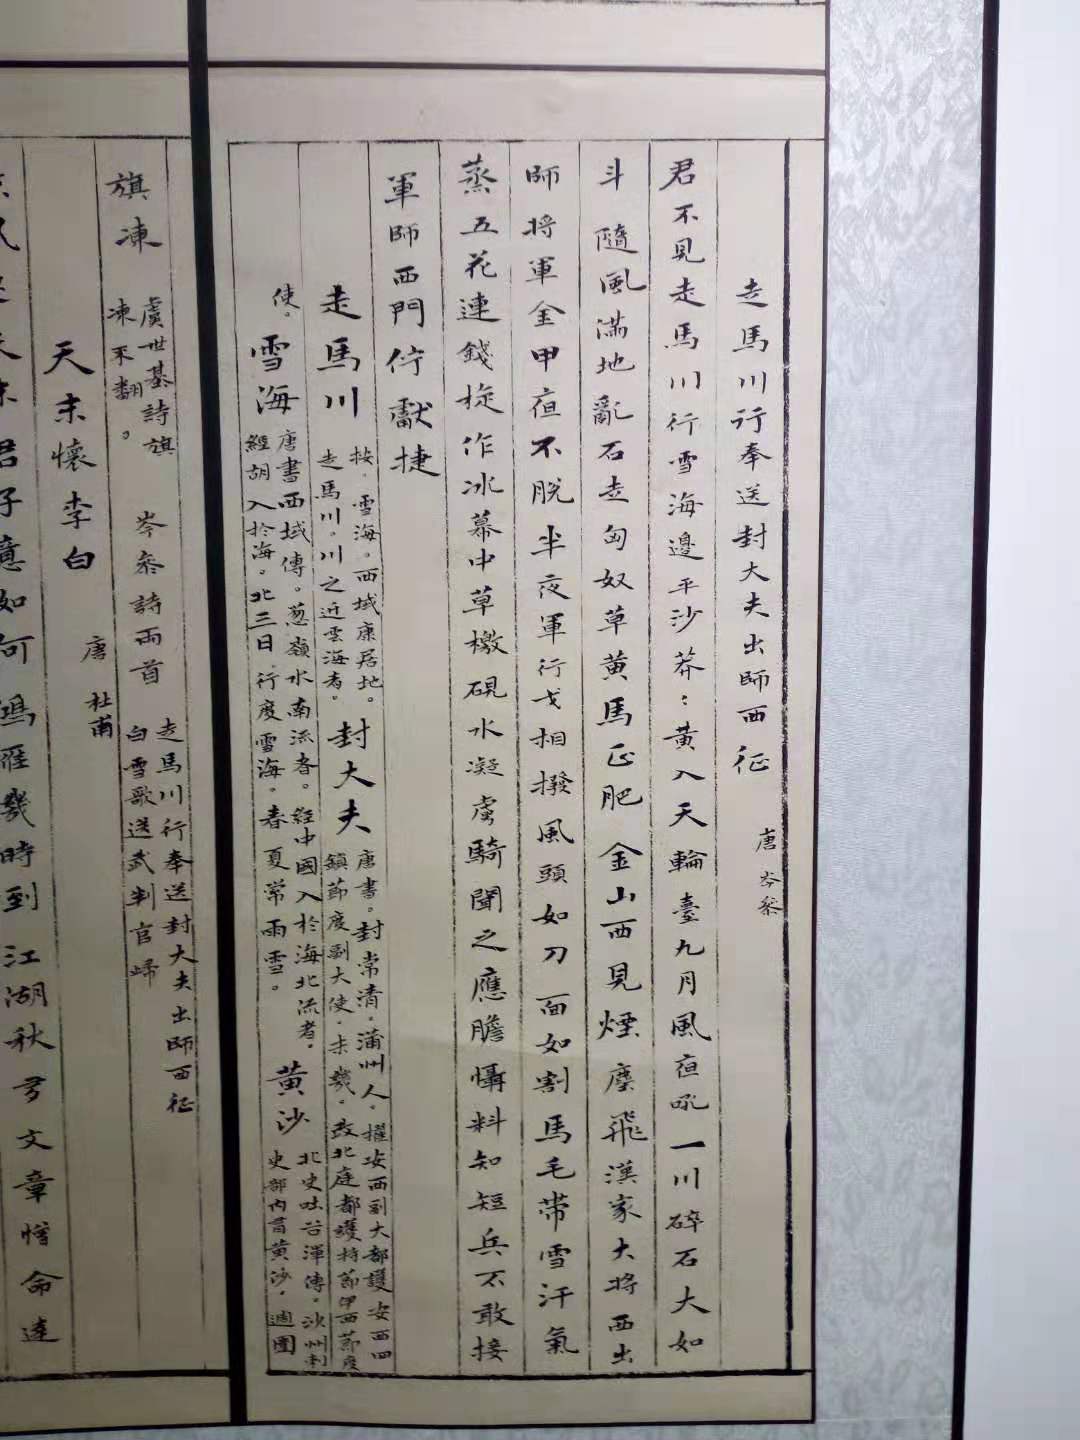 走馬川行奉送封大夫出師西征 唐 岑參
君不見走馬川行雪海邊平沙莽：黃入天輪臺九月風夜吼一川碎石大如
斗隨風滿地亂石走匈奴草黃馬正肥金山西見煙塵飛漢家大將西出
師將軍金甲夜不脫半夜軍行戈相撥風頭如刀面如割馬毛帶雪汗氣
蒸五花連錢旋作冰幕中草檄硯水凝虜騎聞之應膽懾料知短兵不敢接
軍師西門佇獻捷
走馬川 按．雪海。西域康居地。
走馬川。川之近雲海者。
封大夫 唐書。封常清。蒲州人。擢安西副大都護安西四
鎮節度副大使．未幾。改北庭都護持節伊西節度
使。
雪海 唐書西域傳。葱嶺水南流者。經中國入於海北流者。
經胡入於海。北三日．行度雪海。春夏常雨雪。
黃沙 北史吐谷渾傳。沙州刺
史部內有黃沙。週圍
旗凍 虞世基詩旗
凍不翻。
岑參詩兩首 走馬川行奉送封大夫出師西征
白雪歌送武判官歸
天末懷李白 唐 杜甫
天末君子意如何鴻雁幾時到江湖秋多文章憎命達